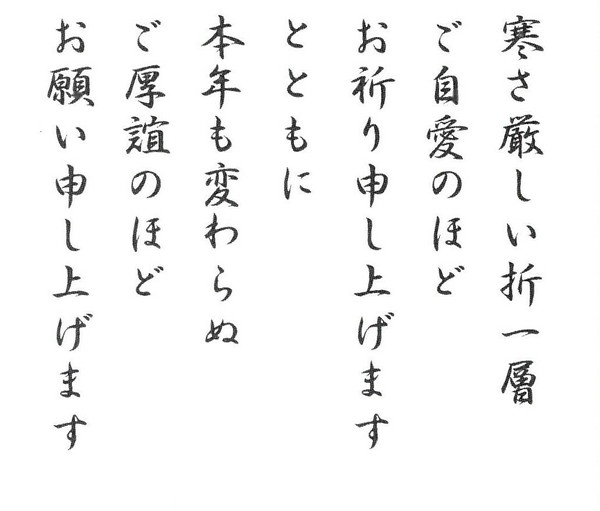 寒さ厳しい折一層
ご自愛のほど
お祈り申し上げます
とともに
本年も変わらぬ
ご厚誼のほど
お願い申し上げます